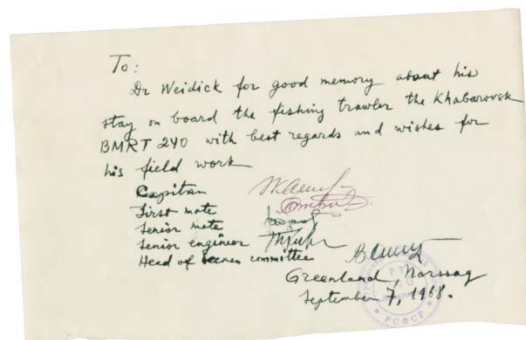 To:
Dr Weidick for good memory about his
stay on board the fishing trawler the Khabarovsk
BMRT 240 with best regards and wishes for
his field work
Capitan
First mate
Senior mate
Senior engineer
Head of committee
Greenland, Narssaq
September 7, 1968.
РСФСР